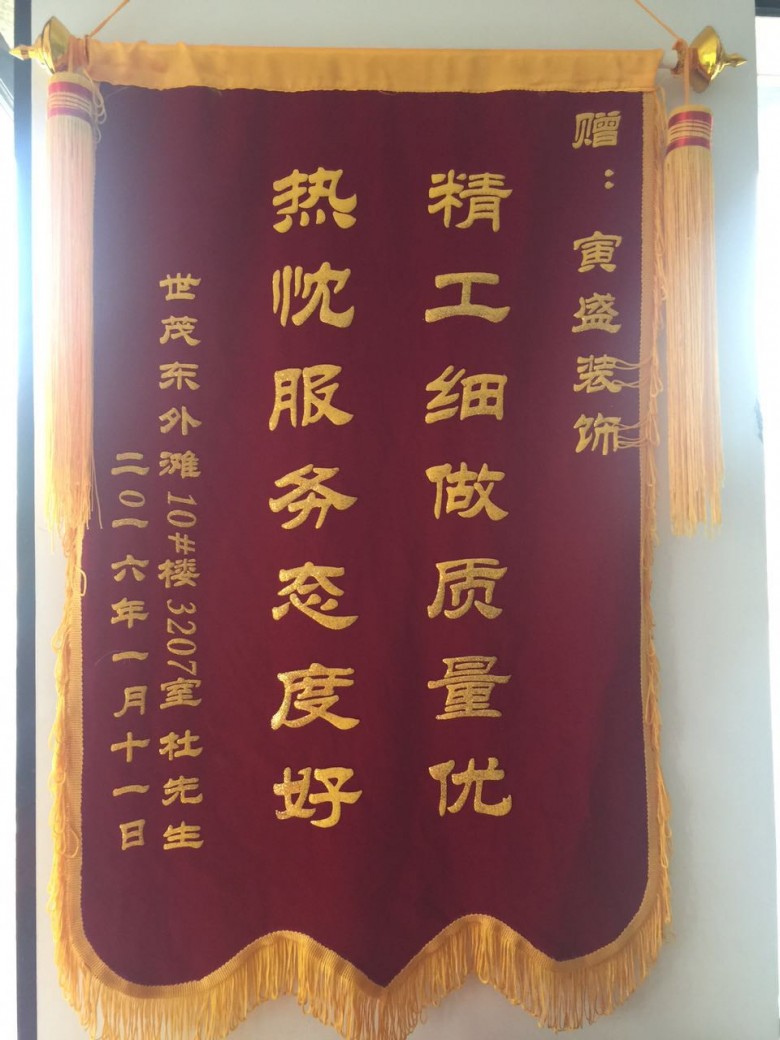 赠：寅盛装饰
精工细做质量优
热忱服务态度好
世茂东外滩10#楼3207室杜先生
二0一六年一月十一日